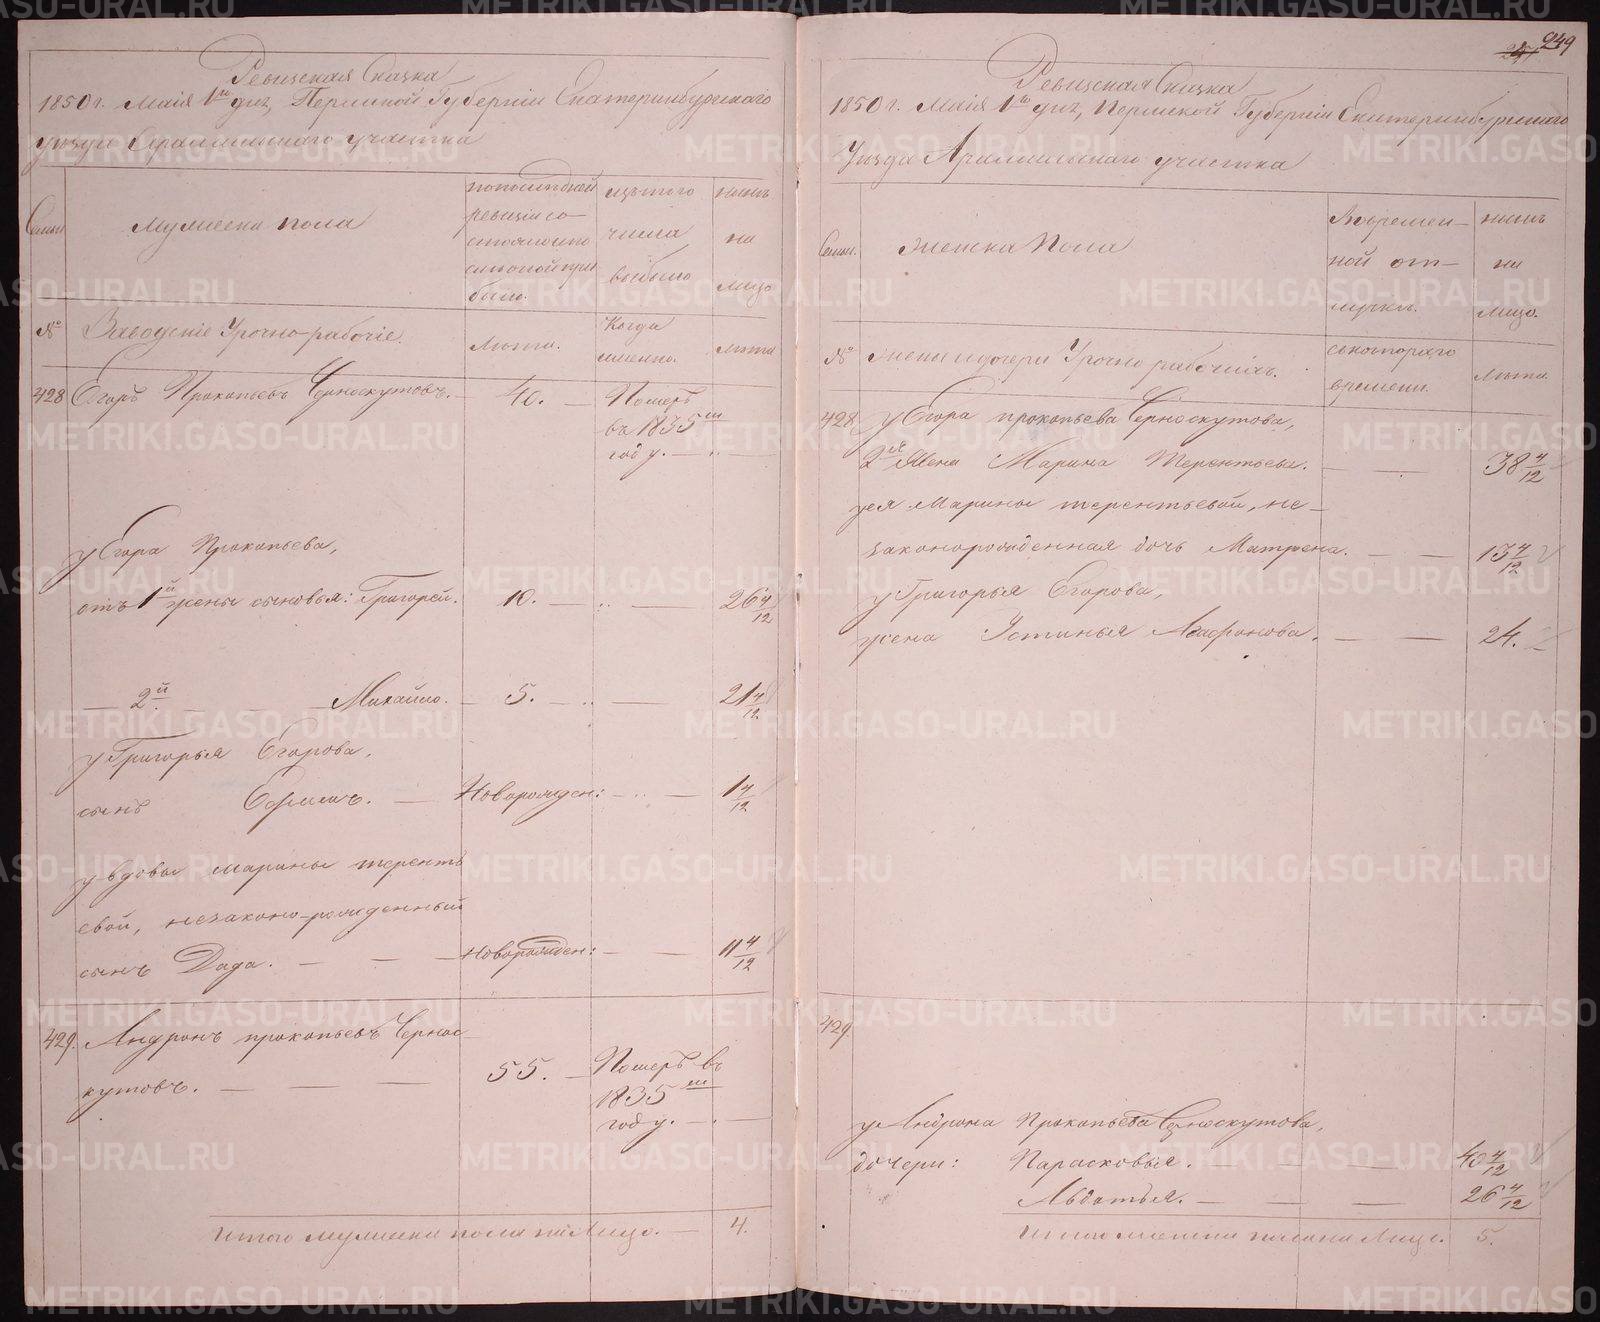 Ревизская Сказка
1850 г. Маія 1го дня, Пермской Губерніи Екатеринбургскаго
уезда Арамильскаго участка
Семьи
Мужеска пола
по последней
ревизіи со-
стояло и по
оной при
было.
изъ того
числа
выбыло
ныне
на
лицо
№
Заводскіе Урочно-рабочіе.
Лѣта.
Когда
именно.
лѣта
428
Егоръ Прокопьевъ Черноскутовъ.
40.
Померъ
въ 1835м
году.
у Егора Прокопьева,
отъ 1й жены сыновья: Григорей.
10.
26 4/12
2й
Михайло.
5.
21 4/12
у Григорья Егорова,
сынъ Ефимъ.
Новорожден:
1 4/12
у вдовы Марины терентъ
евой, незаконо-рожденный
сынъ Дада.
Новорожден:
11 4/12
429.
Андронъ прокопьевъ Чернос-
кутовъ.
55.
Померъ въ
1835м
году.
Итого мужеска пола на Лицо.
4.
249
Ревизская Сказка
1850 г. Маія 1го дня, Пермской Губерніи Екатеринбургскаго
Уезда Арамильскаго участка
Семьи.
Женска Пола
Въ времен-
ной от-
лучкѣ.
ныне
на
лицо.
№
жены и дочери Урочно рабочихъ.
съ котораго
времени.
Лѣта.
428.
у Егора прокопьева Черноскутова,
2я Жена Марина Терентьева.
38 4/12
у ея Марины терентьевой, не-
законорожденная дочь Матрена.
13 4/12
у Григорья Егорова,
жена Устинья Агафонова.
24.
429.
у Андрона Прокопьева Черноскутова,
дочери: Парасковья.
40 4/12
Авдотья.
26 4/12
Итого женска пола на Лицо.
5.
METRIKI.GASO-URAL.RU